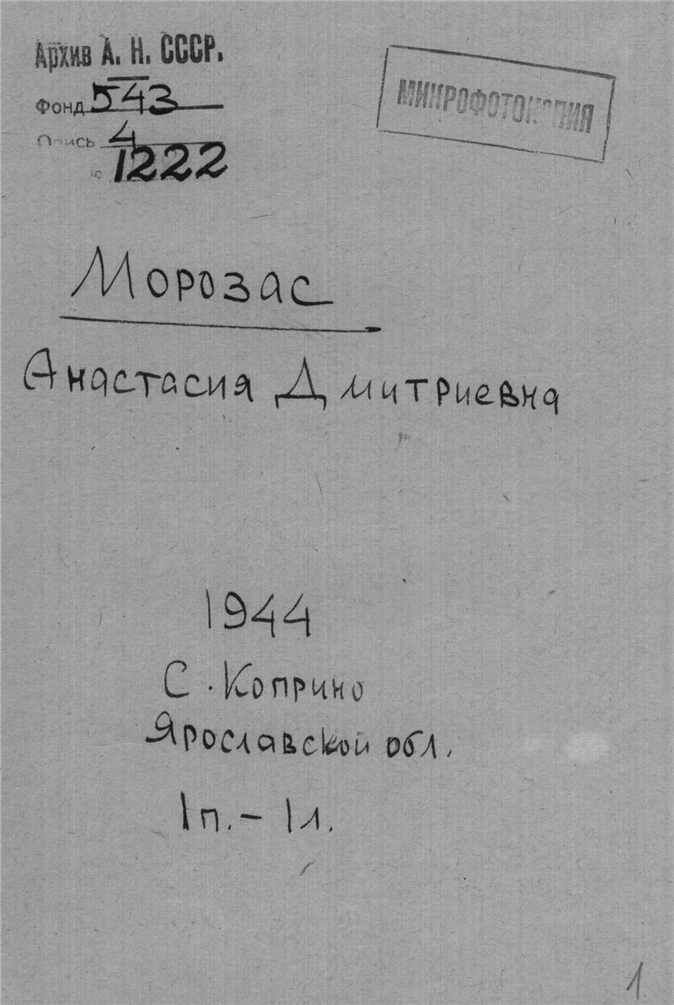 Архив А. Н. СССР.
Фонд 543
Опись 4
№ 1222
МИКРОФОТОКОПИЯ
Морозас
Анастасия Дмитриевна
1944
С. Коприно
Ярославской обл.
1п. – 1л.
1